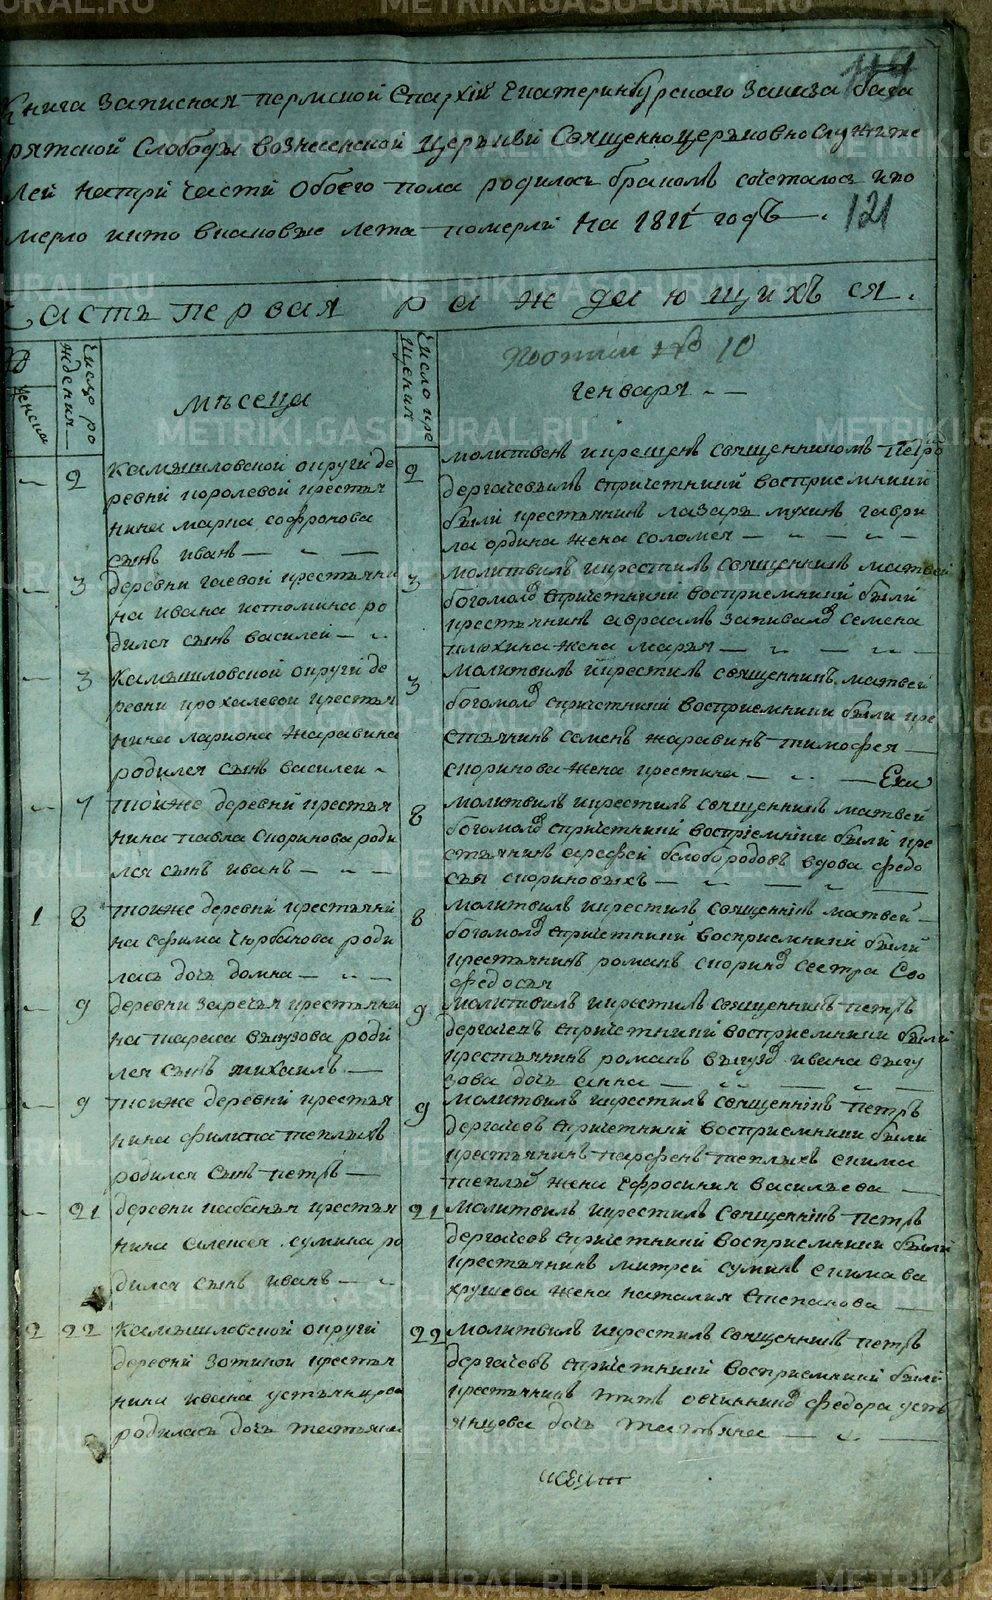 119
Книга Записная пермской Епархiи Екатеринбурскаго Заказа бага
ряжской Слободы вознесенской церькви Священноцерьковнослужите
лей натри Части обоего пола родилось бракомъ сочеталось ипо
мерло икто вкаковые лета померли На 1811 годъ
121
Часть первая раждающихъся.
женска
Число ро
ждения
мѣсеца
Число кре
щения
№ 10
генваря
2
камышловской округи де
ревни королевой крестья
нина марка софронова
сынъ иванъ
2
молитвенъ икрещенъ священникомъ Петро
дергачевымъ спричетники восприемники
были крестьянинъ лазарь мухинъ гаври
ла ордина жена соломея
3
деревни гаевой крестьяни
на ивана истомина ро
дился сынъ василеи
3
молитвилъ икрестилъ священникъ матвей
богомоловъ спричетники восприемники были
крестьянинъ авраамъ запиваловъ семена
плюхина жена марья
3
камышловской округи де
ревни крохалевой крестья
нина лариона жаравина
родился сынъ василеи
3
молитвилъ икрестилъ священникъ матвей
богомоловъ спричетники восприемники были кре
стьянинъ семенъ жаравинъ тимофея
споринова жена крестина
7
тойже деревни крестья
нина павла споринова роди
лся сынъ иванъ
8
молитвилъ икрестилъ священникъ матвей
богомоловъ спричетники восприемники были кре
стьянинъ арефей белобородовъ вдова федо
сья спориновыхъ
1
8
тойже деревни крестьяни
на ефима Чюрбанова роди
лась дочь домна
8
молитвилъ икрестилъ священникъ матвей
богомоловъ спричетники восприемники были
крестьянинъ романъ спориновъ сестра Ево
федосья
9
деревни заречья крестьяни
на тараса выгузова роди
лся сынъ михаилъ
9
молитвилъ икрестилъ священникъ петръ
дергачевъ спричетники восприемники были
крестьянинъ романъ выгузовъ ивана выгу
зова дочь анна
9
тойже деревни крестья
нина филипа теплыхъ
родился сынъ петръ
9
молитвилъ икрестилъ священникъ петръ
дергачевъ спричетники восприемники были
крестьянинъ парфенъ теплыхъ екима
теплыхъ жена Ефросиния васильева
21
деревни кабанья крестья
нина алексея сумина ро
дился сынъ иванъ
21
молитвилъ икрестилъ священникъ петръ
дергачевъ спричетники восприемники были
крестьянинъ митрей суминъ екима ва
хрушева жена наталия степанова
2
22
камышловской округи
деревни зотиной крестья
нина ивана устьянцова
родилась дочь татьяна
22
молитвилъ икрестилъ священникъ петръ
дергачевъ спричетники восприемники были
крестьянинъ титъ овчинниковъ федора усть
янцова дочь татьяна
METRIKI.GASO-URAL.RU